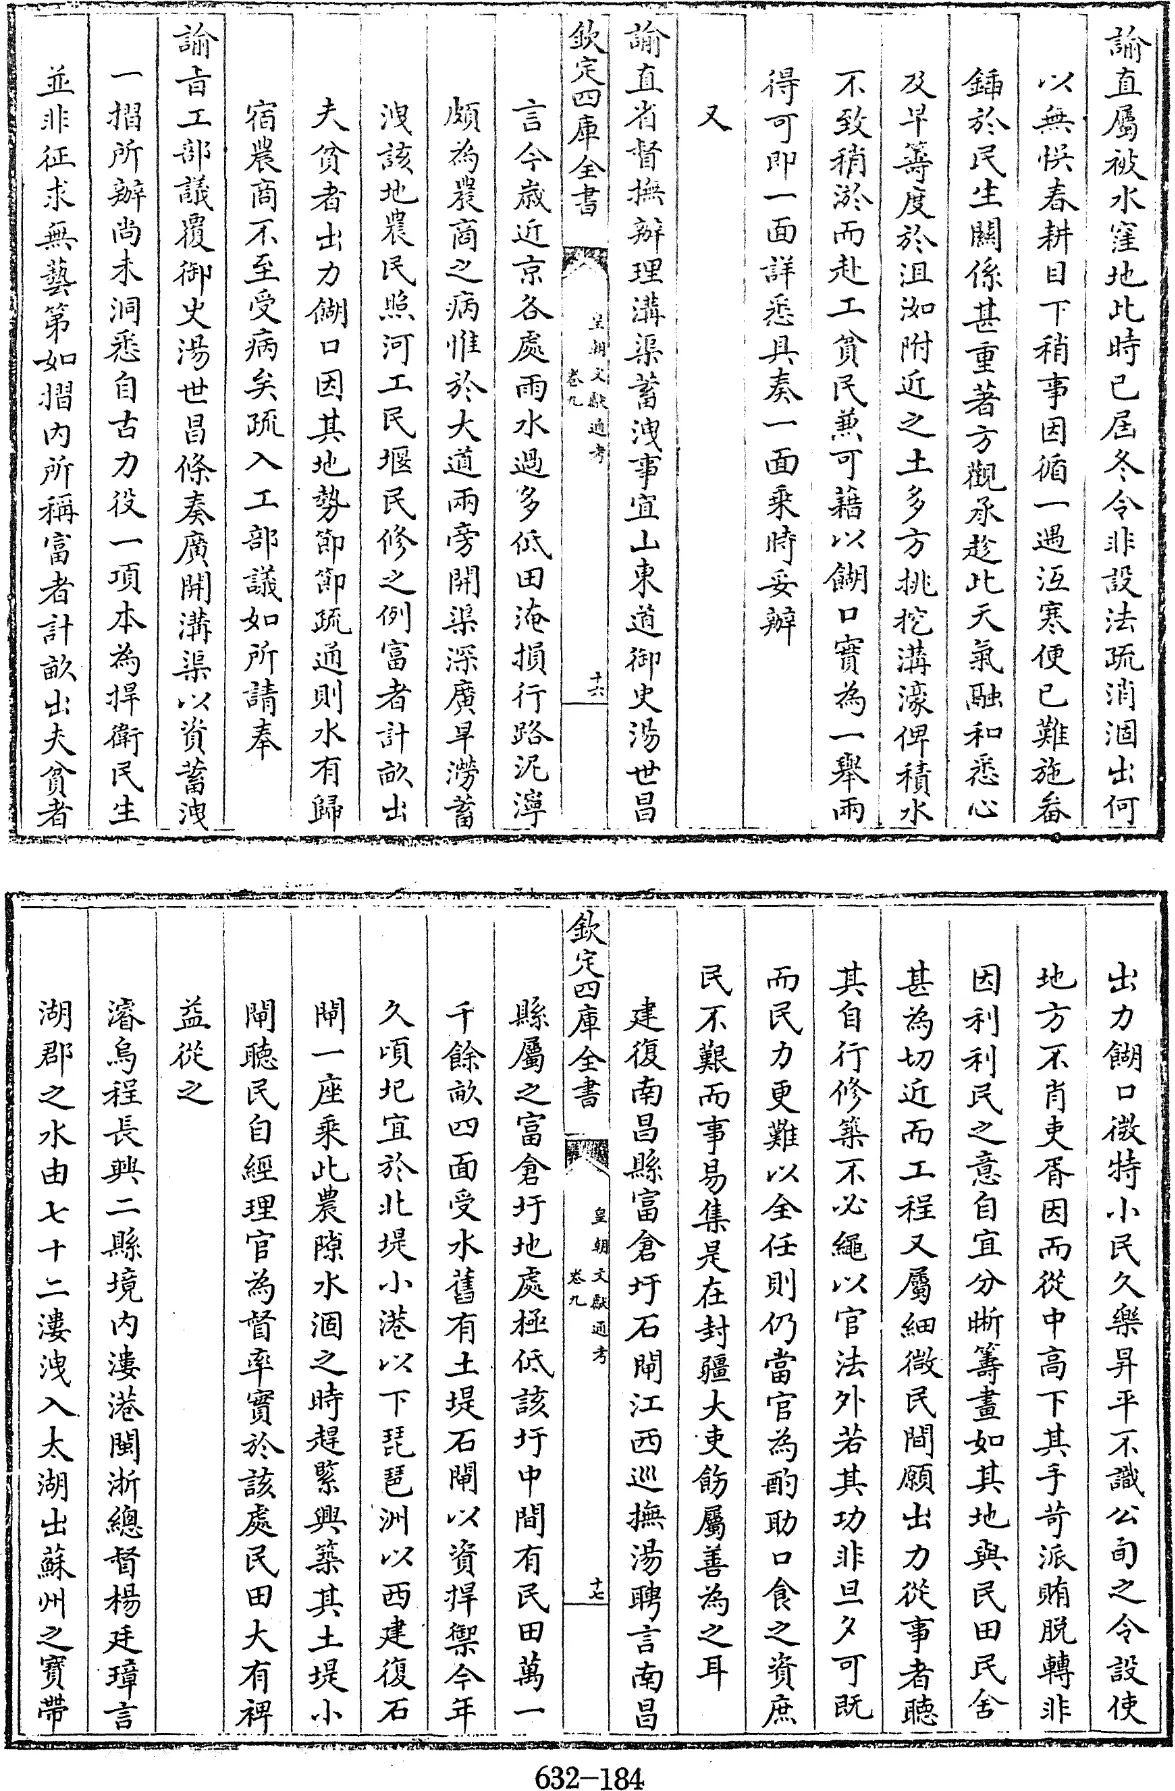 諭直屬被水窪地此時已屆冬令非設法疏消涸出何
以無悞春耕目下稍事因循一遇沍寒便已難施畚
鍤於民生關係甚重著方觀承趁此天氣融和悉心
及早籌度於沮洳附近之土多方挑挖溝濠俾積水
不致稍淤而赴工貧民兼可藉以餬口實為一舉兩
得可即一面詳悉具奏一面乘時妥辦
又
諭直省督撫辦理溝渠蓄洩事宜山東道御史湯世昌
欽定四庫全書
皇朝文獻通考
卷九
十六
言今歲近京各處雨水過多低田淹損行路泥濘
頗為農商之病惟於大道兩旁開渠深廣旱澇蓄
洩該地農民照河工民堰民修之例富者計畝出
夫貧者出力餬口因其地勢節節疏通則水有歸
宿農商不至受病矣疏入工部議如所請奉
諭旨工部議覆御史湯世昌條奏廣開溝渠以資蓄洩
一摺所辦尚未洞悉自古力役一項本為捍衛民生
並非征求無藝第如摺內所稱富者計畝出夫貧者
出力餬口微特小民久樂昇平不識公旬之令設使
地方不肖吏胥因而從中高下其手苛派賄脫轉非
因利利民之意自宜分晰籌畫如其地與民田民舍
甚為切近而工程又屬細微民間願出力從事者聽
其自行修築不必繩以官法外若其功非旦夕可既
而民力更難以全任則仍當官為酌助口食之資庶
民不艱而事易集是在封疆大吏飭屬善為之耳
建復南昌縣富倉圩石閘江西巡撫湯聘言南昌
欽定四庫全書
皇朝文獻通考
卷九
十七
縣屬之富倉圩地處極低該圩中間有民田萬一
千餘畝四面受水舊有土堤石閘以資捍禦今年
久頃圮宜於北堤小港以下琵琶洲以西建復石
閘一座乘此農隙水涸之時趕緊興築其土堤小
閘聽民自經理官為督率實於該處民田大有裨
益從之
濬烏程長興二縣境內漊港閩浙總督楊廷璋言
湖郡之水由七十二漊洩入太湖出蘇州之寶帶
632-184